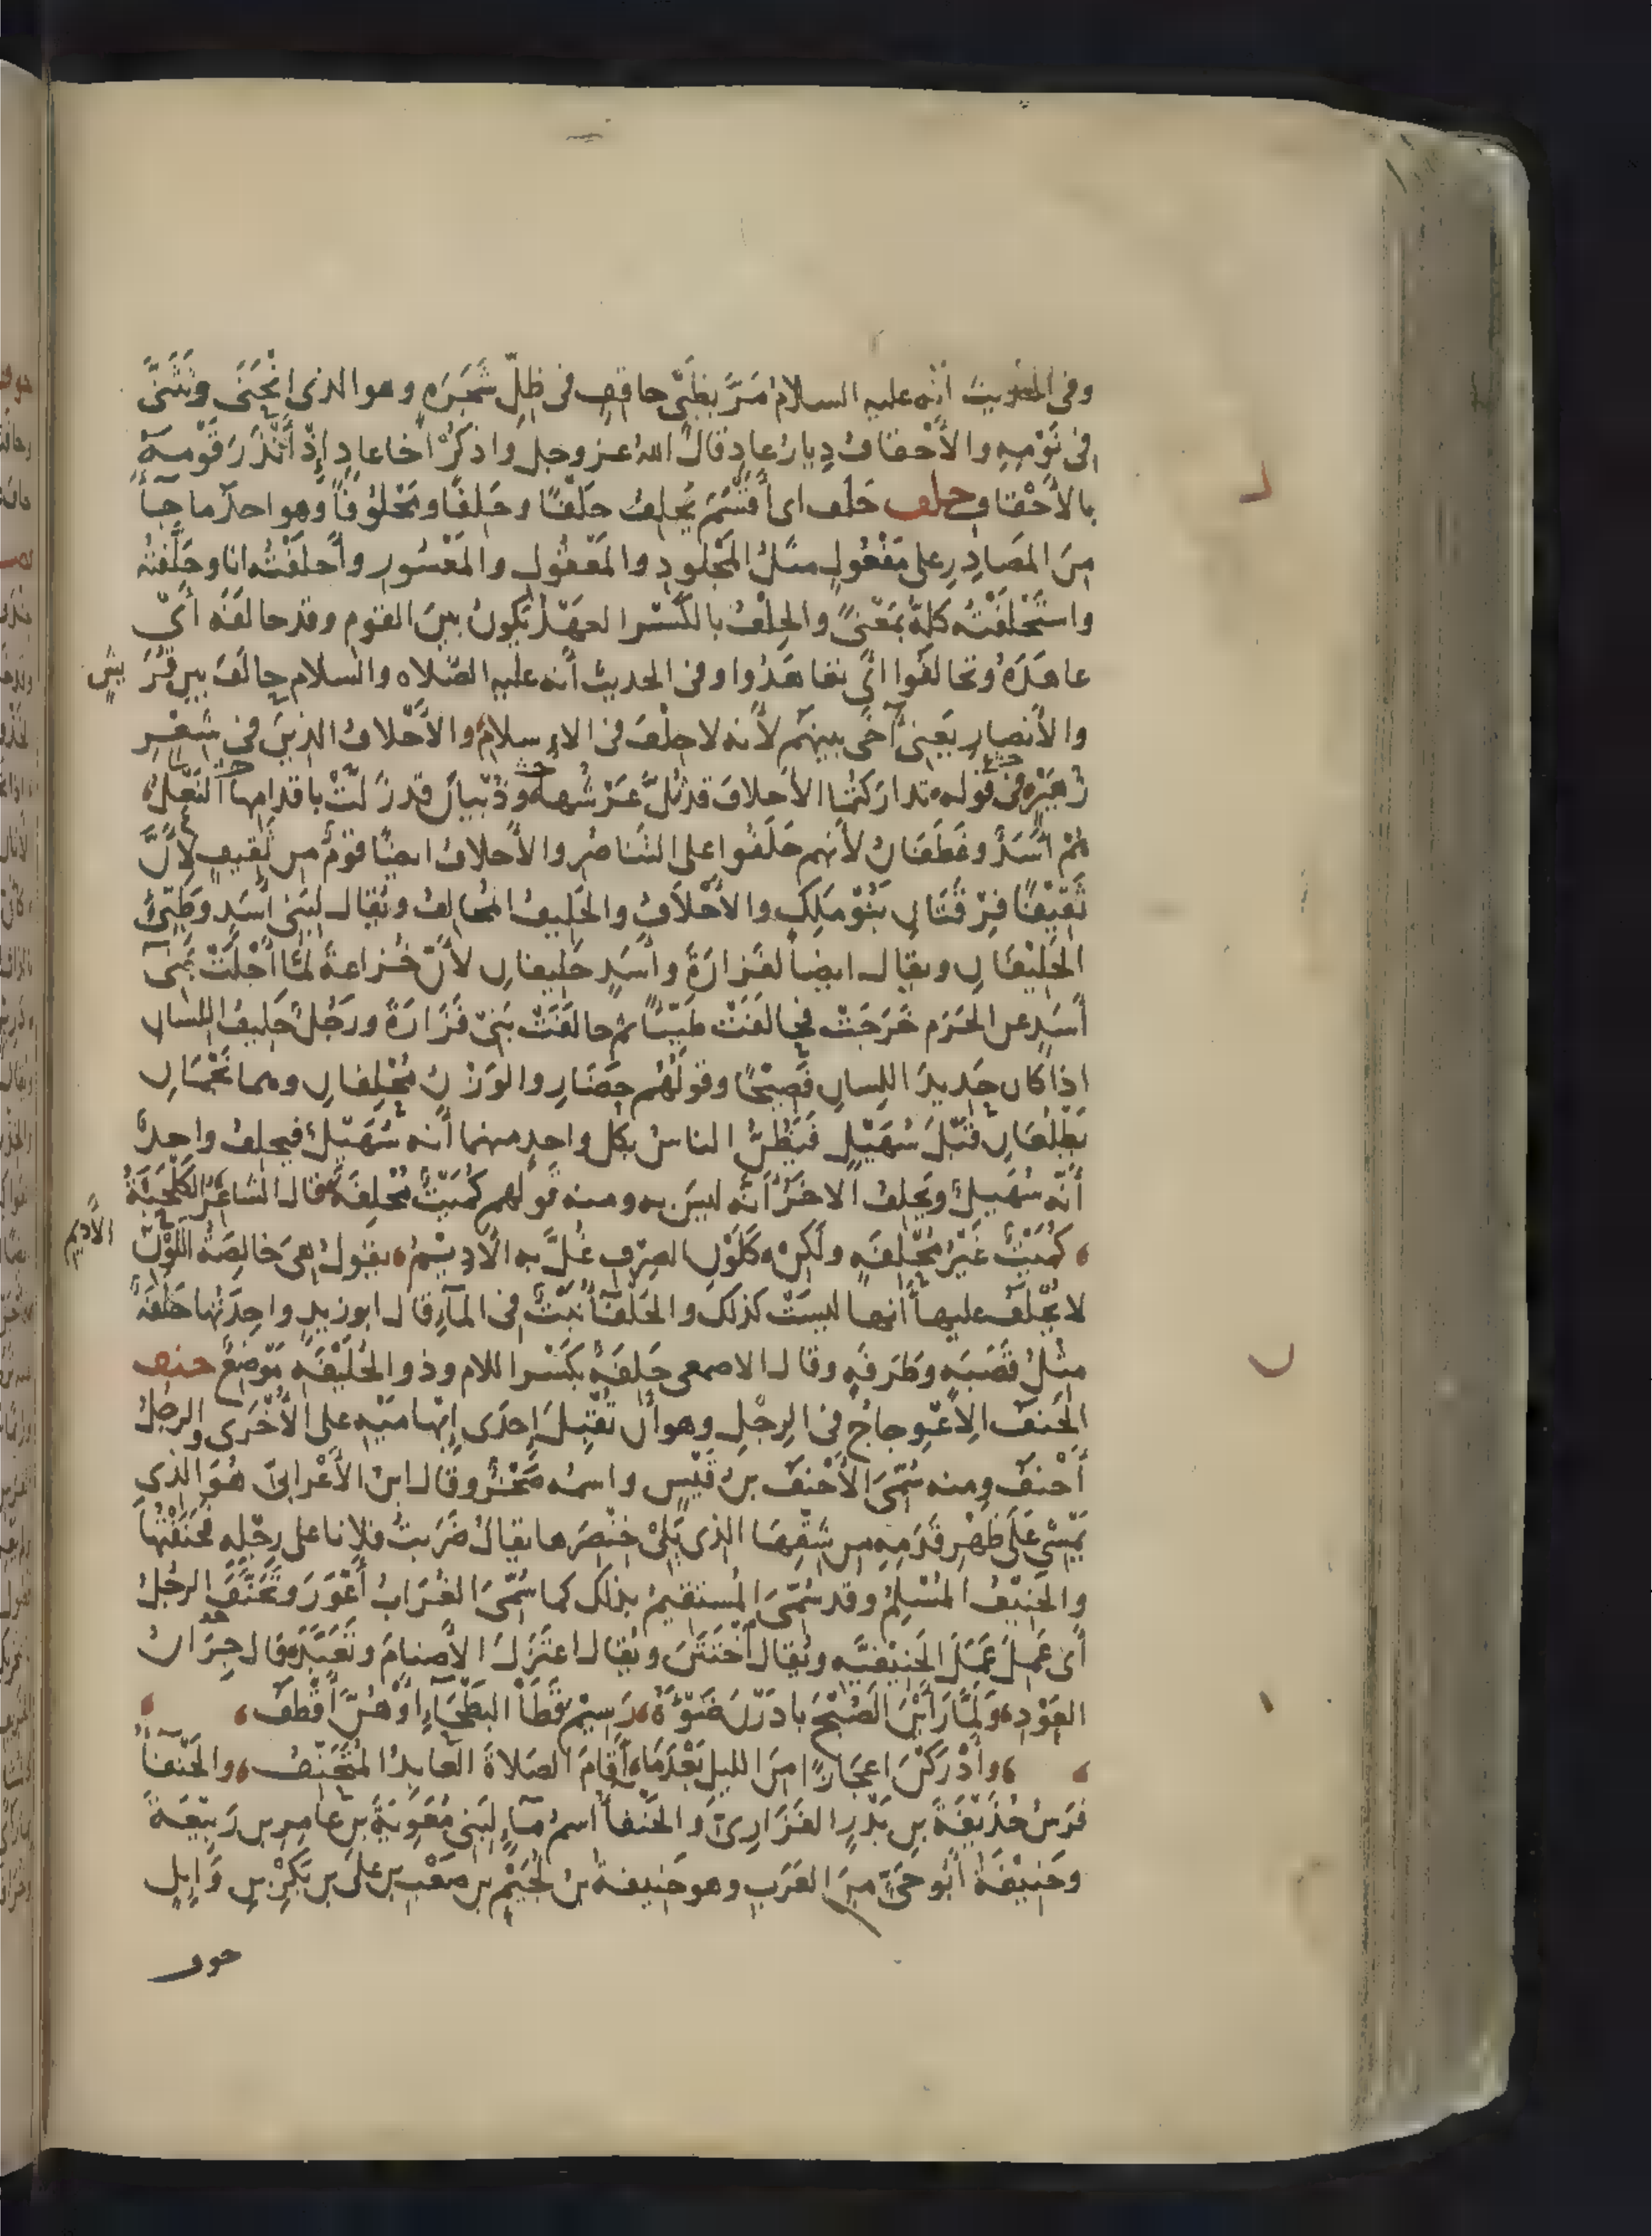 وفى الحديث أنه عليه السلام مَرَّ بظَبْىٍ حاقِفٍ فى ظِلِّ شَجَرَةٍ وهو الذى انْحَنَى وتَثَنَّى
فى نَوْمِهِ والأَحْقافُ دِيارُ عادٍ قال اللهُ عز وجل واذكُرْ أخا عادٍ إذْ أَنْذَرَ قَوْمَهُ
بالأَحْقافِ حلف حَلَف اى أقْسَمَ يَحْلِفُ حَلْفًا وحَلِفًا ومَحْلُوفًا وهو احد ما جاء
مِنَ المَصادِرِ على مَفْعُولٍ مثلُ المَجْلودِ والمَعْقُولِ والمَعْسُورِ وأَحلَفْتُه انا وحَلَّفتُه
واسْتَحْلَفْتُه كلهُ بمَعْنىً والحِلْفُ بالكَسْر العهدُ يَكونُ بينَ القومِ وقد حالَفَه أىْ
عاهَدَهُ وتحالَفُوا أى تعاهَدُوا وفى الحديث أنه عليه الصَّلاه والسلام حالَفَ بين قُرَيشٍ
والأنصارِ يَعنى آخَى بينهم لأنه لا حِلْفَ فى الاسلامِ والأَحْلافُ الذينَ فى شِعْرِ
زُهَيْرٍ فى قوله تداركتما الأحلافَ قد ثُلَّ عَرْشُها وذُبْيانَ قد زَلَّتْ بأقدامِها النَّعْلُ
هُمْ أسَدٌ وغَطَفانُ لأنهم حَلَفُوا على التَّناصُرِ والأحلافُ ايضًا قومٌ من ثَقِيفٍ لأنَّ
ثَقِيفًا فِرْقَتانِ بَنُو مَلِكٍ والأحْلافُ والحَلِيفُ المُحالِفُ ويُقال لبَنِى أَسَدٍ وطَيِّئٍ
الحَلِيْفانِ ويقال ايضا لفَزارَةَ وأسَدٍ حَلِيفانِ لأنّ خُزاعةَ لمّا أَجْلَتْ بَنِى
أسَدٍ عن الحَرَمِ خَرَجَتْ فحالَفَتْ طَيِّئًا ثم حالَفَتْ بَنِى فَزَارَةَ ورَجُلٌ حَلِيفُ اللسانِ
اذا كان حَدِيدَ اللِسانِ فَصِيحًا وقولُهم حَضَارِ والوَزْنُ مُحْلِفانِ وهما نَجْمَانِ
يَطْلُعَانِ قَبْلَ سُهَيْلٍ فيَظُنُّ الناسُ بكل واحدٍ منهما أنه سُهَيْلٌ فيحلِفُ واحدٌ
أنّه سُهَيلٌ ويَحلِفُ الاخَرُ أنّه ليسَ به ومنه قولهم كُمَيْتٌ مُحْلِفَةٌ قال الشاعرُ الكَلْحَبَةُ
كُمَيْتٌ غَيْرُ مُحْلِفَةٍ ولكِنْ كَلَوْنِ الصِرْفِ عُلَّ به الأدِيْمُ يقولُ هِىَ خالِصَةُ اللَّوْنِ الأديم
لا يُحْلَفُ عليها أنها ليسَتْ كذلك والحَلْفَآءُ نَبْتٌ فى المآءِ قال ابو زيدٍ واحِدَتُها حَلَفَةٌ
مِثلُ قَصَبَةٍ وطَرَفَةٍ وقال الاصمعى حَلِفَةٌ بكَسْر اللام وذو الحُلَيْفَةِ مَوْضِعٌ حنف
الحَنَفُ الاعْوِجاجُ فى الرِجْلِ وهو أن تُقْبِلَ إحدَى إبْهامَيْهِ على الأُخْرَى والرجلُ
أَحْنَفُ ومنه سُمِّىَ الأَحْنَفُ بنُ قَيْسٍ واسمُه صَخْرٌ وقال ابنُ الأَعْرابىّ هُوَ الذى
يَمْشِى عَلَى ظَهْرِ قَدَمِهِ من شِقِّها الذى يَلِى خِنْصِرَها يقالُ ضَرَبتُ فلانا على رِجْلِه فحَنَفْتُها
والحَنِيْفُ المُسْلِمُ وقد سُمِّىَ المُستقيمُ بذلك كما سُمِّىَ الغُرَابُ أعْوَرَ وتَحَنَّفَ الرجُلُ
أى عَمِلَ عَمَلَ الحَنِيْفيَّه ويُقال اخْتَتَنَ ويُقال اعتَزَلَ الأَصنامَ وتَعَبَّدَ قال جِرَانُ
العَوْدِ ولَمَّا رَأَيْنَ الصُبْحَ بادَرْنَ ضَوْءَهُ رَسِيْمَ قَطَا البَطْحَآءِ أوْ هُنَّ أقْطَفُ
وأدْرَكْنَ اعجازًا مِنَ الليلِ بَعْدَمَا أقَامَ الصلاةَ العابِدُ المُتَحَنِّفُ والحَنْفَآءُ
فَرَسُ حُذَيْفَةَ بنِ بَدْرٍ الفَزَارِىّ والحَنْفآءُ اسمُ مآءٍ لِبَنِى مُعَوِيَةَ بنِ عامِرِ بنِ رَبِيْعَةَ
وحَنِيْفَةُ أبُو حَىٍّ مِنَ العَرَبِ وهو حَنِيفةُ بنُ لُجَيْمِ بنِ صَعْبِ بنِ على بنِ بَكْرِ بنِ وَايِلٍ
حوف